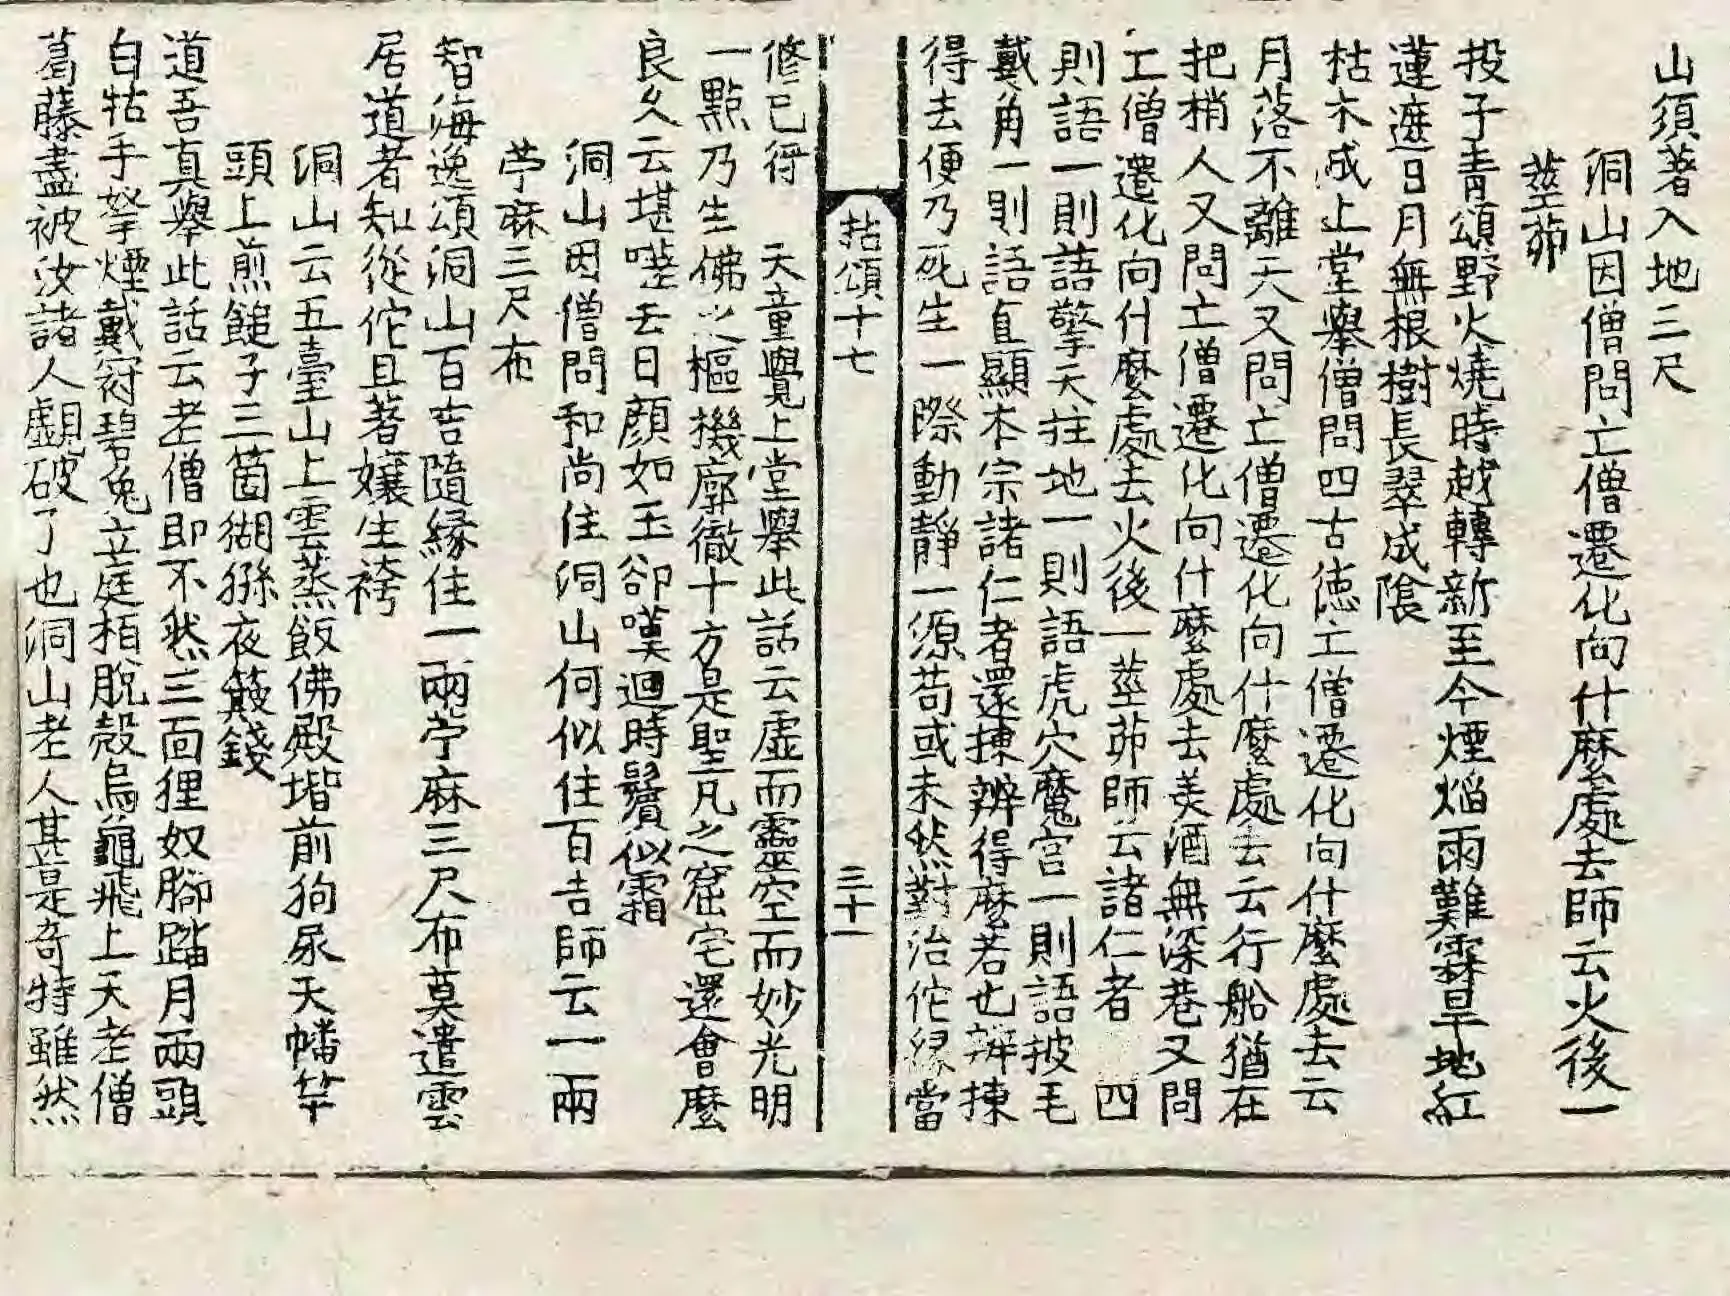 山須著入地三尺
洞山因僧問亡僧遷化向什麼處去師云火後一
莖茆
投子青頌野火燒時越轉新至今煙焰雨難霖旱地紅
蓮遮日月無根樹長翠成陰
枯木成上堂舉僧問四古德亡僧遷化向什麼處去云
月落不離天又問亡僧遷化向什麼處去云行船猶在
把梢人又問亡僧遷化向什麼處去美酒無深巷又問
亡僧遷化向什麼處去火後一莖茆師云諸仁者 四
則語一則語擎天拄地一則語虎穴魔宮一則語披毛
戴角一則語直顯本宗諸仁者還揀辨得麼若也辨揀
得去便乃死生一際動靜一源苟或未然對治佗緣當
拈頌十七 三十一
修已得 天童覺上堂舉此話云虛而靈空而妙光明
一點乃生佛之樞機廓徹十方是聖凡之窟宅還會麼
良久云堪嗟去日顏如玉卻嘆迴時鬢似霜
洞山因僧問和尚住洞山何似住百吉師云一兩
苧麻三尺布
智海逸頌洞山百吉隨緣住一兩苧麻三尺布莫遣雲
居道者知從佗且著孃生袴
洞山云五臺山上雲蒸飯佛殿堦前狗尿天幡竿
頭上煎鎚子三箇猢猻夜簸錢
道吾真舉此話云老僧即不然三面狸奴腳踏月兩頭
白牯手拏煙戴冠碧兔立庭栢脫殼烏龜飛上天老僧
葛藤盡被汝諸人覷破了也洞山老人甚是奇特雖然